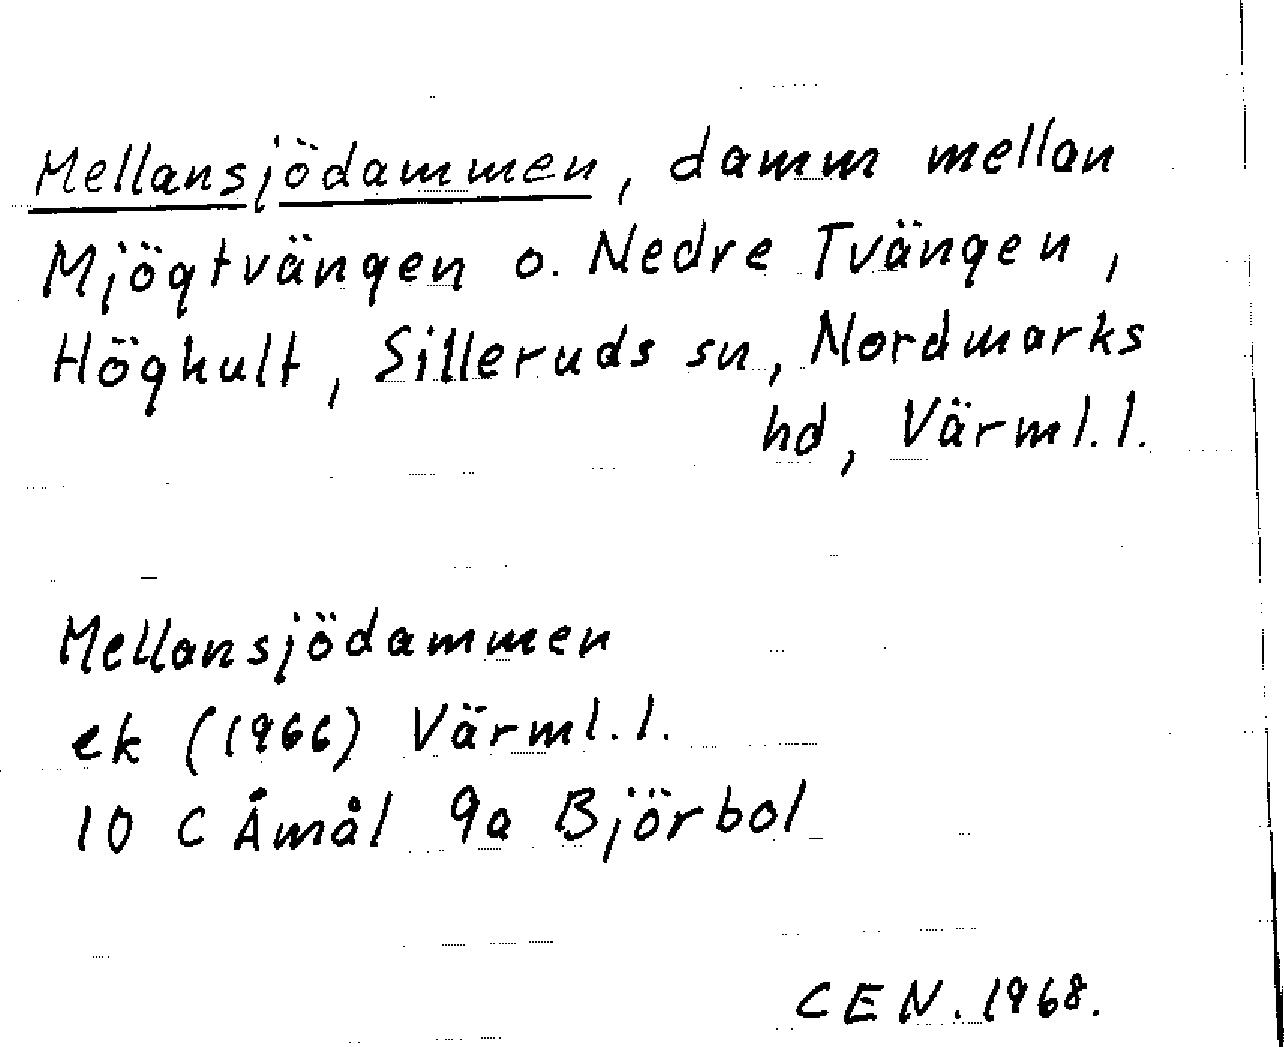 Mellansjödammen, damm mellan
Mjögtvängen o. Nedre Tvängen,
Höghult, Silleruds sn, Nordmarks
hd, Värml.l.
Mellansjödammen
ek (1966) Värml.l.
10 C Åmål 9a Björbol
CEN. 1968.